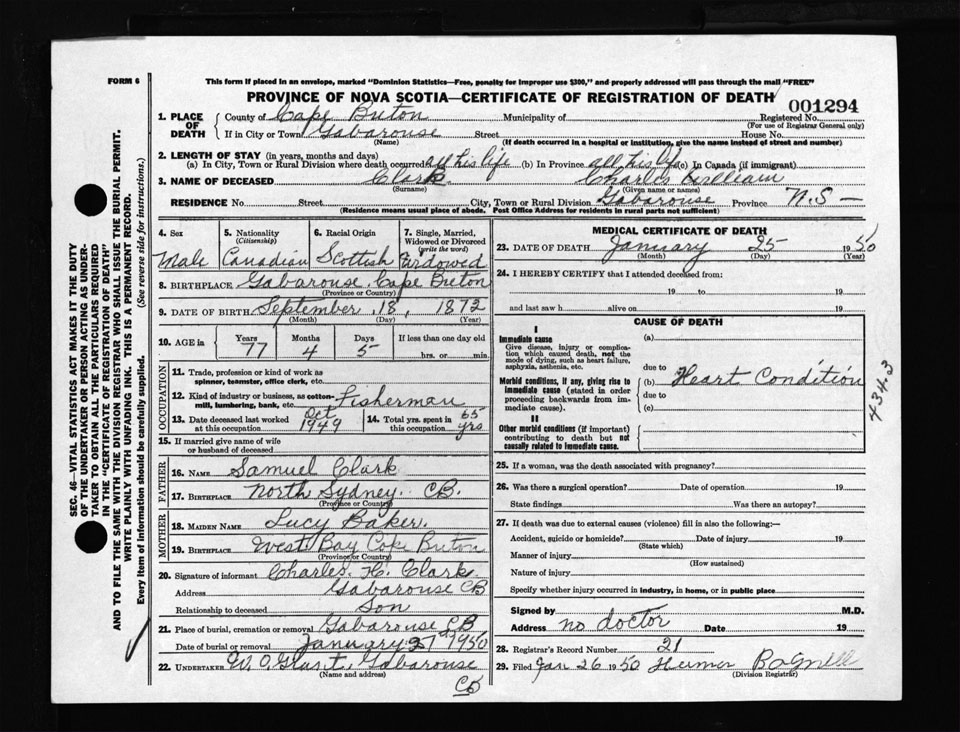 FORM 6
This form if placed in an envelope, marked "Dominion Statistics—Free, penalty for improper use $300," and properly addressed will pass through the mail "FREE"
PROVINCE OF NOVA SCOTIA—CERTIFICATE OF REGISTRATION OF DEATH
001294
1. PLACE OF DEATH
County of Cape Breton Municipality of Registered No.
(For use of Registrar General only)
If in City or Town Gabarouse Street House No.
(Name) (If death occurred in a hospital or institution, give the name instead of street and number)
2. LENGTH OF STAY (in years, months and days)
(a) In City, Town or Rural Division where death occurred all his life (b) In Province all his life (c) In Canada (if immigrant)
3. NAME OF DECEASED Clark Charles William
(Surname) (Given name or names)
RESIDENCE No. Street City, Town or Rural Division Gabarouse Province N.S —
(Residence means usual place of abode. Post Office Address for residents in rural parts not sufficient)
4. Sex 5. Nationality (Citizenship) 6. Racial Origin 7. Single, Married, Widowed or Divorced (write the word)
Male Canadian Scottish Widowed
8. BIRTHPLACE Gabarouse Cape Breton
(Province or Country)
9. DATE OF BIRTH September 18, 1872
(Month) (Day) (Year)
10. AGE in Years Months Days If less than one day old
77 4 5 hrs. or min.
OCCUPATION
11. Trade, profession or kind of work as spinner, teamster, office clerk, etc.
12. Kind of industry or business, as cotton-mill, lumbering, bank, etc. Fisherman
13. Date deceased last worked at this occupation Oct 1949 14. Total years spent in this occupation 65 yrs
15. If married give name of wife or husband of deceased
FATHER
16. NAME Samuel Clark
17. BIRTHPLACE North Sydney. CB.
(Province or Country)
MOTHER
18. MAIDEN NAME Lucy Baker.
19. BIRTHPLACE West Bay Cape Breton
(Province or Country)
20. Signature of informant Charles H. Clark
Address Gabarouse CB
Relationship to deceased Son
21. Place of burial, cremation or removal Gabarouse CB
Date of burial or removal January 27 1950
22. UNDERTAKER Gabarouse
(Name and address)
CB
MEDICAL CERTIFICATE OF DEATH
23. DATE OF DEATH January 25 1950
(Month) (Day) (Year)
24. I HEREBY CERTIFY that I attended deceased from:
19 to 19
and last saw h alive on 19
CAUSE OF DEATH
I
Give disease, injury or complication which caused death, not the mode of dying, such as heart failure, asphyxia, asthenia, etc.
(a)
due to
Morbid conditions, if any, giving rise to immediate cause (stated in order proceeding backwards from immediate cause).
(b) Heart Condition
due to
(c)
4343
II
Other morbid conditions (if important) contributing to death but not causally related to immediate cause.
25. If a woman, was the death associated with pregnancy?
26. Was there a surgical operation? Date of operation 19
State findings Was there an autopsy?
27. If death was due to external causes (violence) fill in also the following:—
Accident, suicide or homicide? Date of injury 19
(State which)
Manner of injury
(How sustained)
Nature of injury
Specify whether injury occurred in industry, in home, or in public place
Signed by M.D.
Address no doctor Date 19
28. Registrar's Record Number 21
29. Filed Jan 26 1950 Bagnell
(Division Registrar)
SEC. 46—VITAL STATISTICS ACT MAKES IT THE DUTY
OF THE UNDERTAKER OR PERSON ACTING AS UNDER-
TAKER TO OBTAIN ALL THE PARTICULARS REQUIRED
IN THE "CERTIFICATE OF REGISTRATION OF DEATH"
AND TO FILE THE SAME WITH THE DIVISION REGISTRAR WHO SHALL ISSUE THE BURIAL PERMIT.
WRITE PLAINLY WITH UNFADING INK. THIS IS A PERMANENT RECORD.
Every item of information should be carefully supplied. (See reverse side for instructions.)